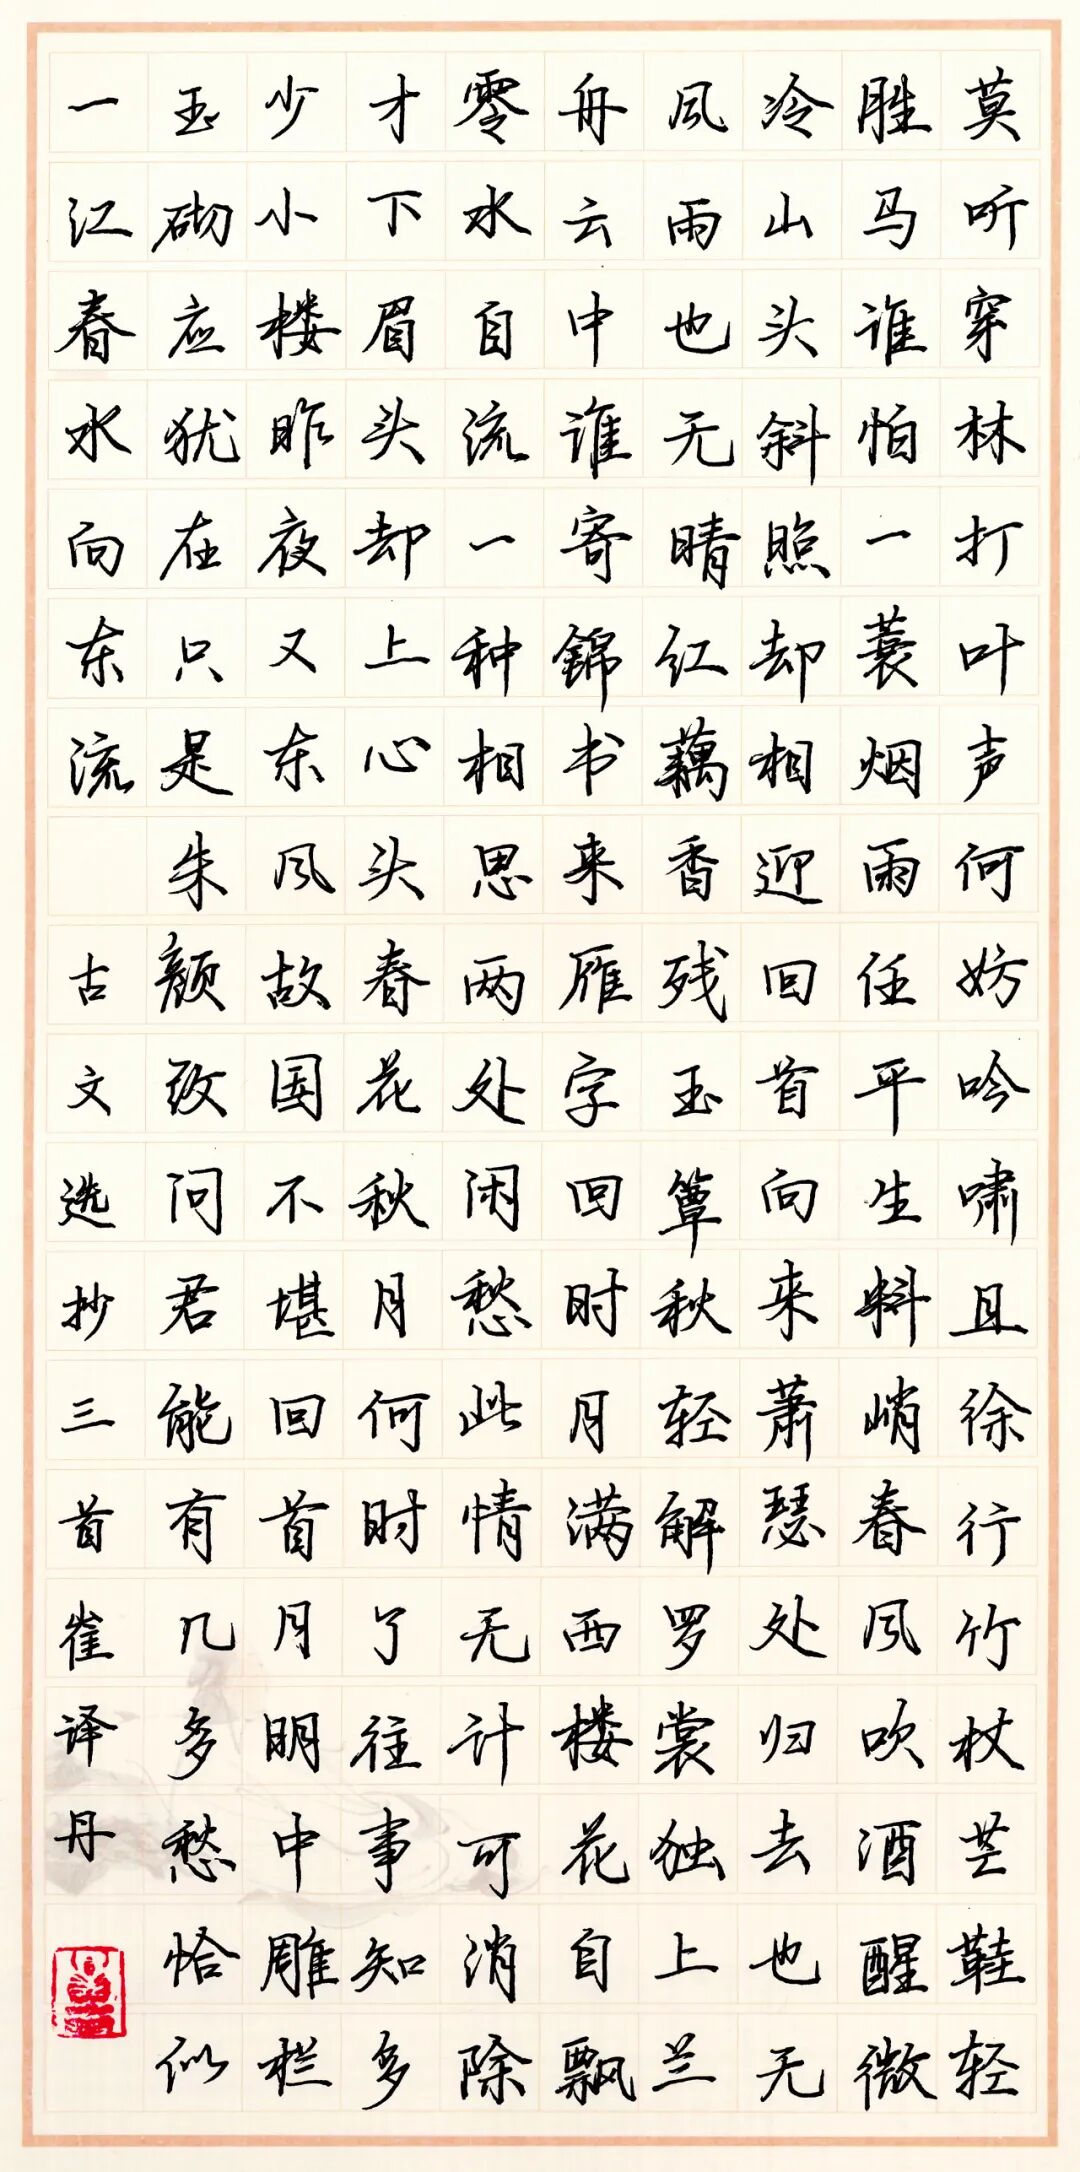 莫听穿林打叶声何妨吟啸且徐行竹杖芒鞋轻
胜马谁怕一蓑烟雨任平生料峭春风吹酒醒微
冷山头斜照却相迎回首向来萧瑟处归去也无
风雨也无晴红藕香残玉簟秋轻解罗裳独上兰
舟云中谁寄錦书来雁字回时月满西楼花自飘
零水自流一种相思两处闲愁此情无计可消除
才下眉头却上心头春花秋月何时了往事知多
少小楼昨夜又东风故国不堪回首月明中雕栏
玉砌应犹在只是朱颜改问君能有几多愁恰似
一江春水向东流 古文选抄三首崔译丹